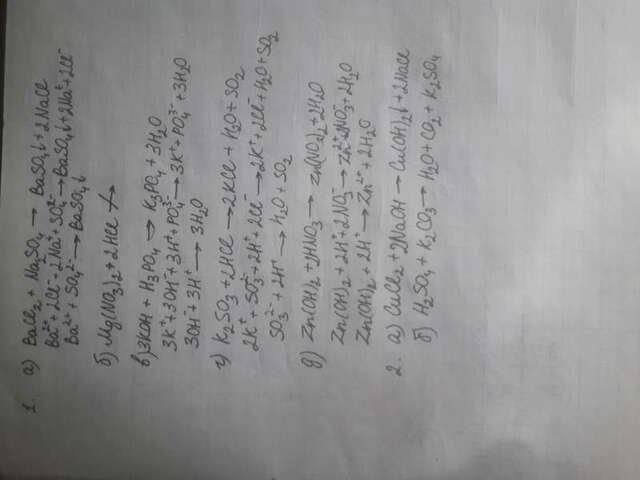 1. а) BaCl₂ + Na₂SO₄ → BaSO₄↓ + 2NaCl
Ba²⁺ + 2Cl⁻ + 2Na⁺ + SO₄²⁻ → BaSO₄↓ + 2Na⁺ + 2Cl⁻
Ba²⁺ + SO₄²⁻ → BaSO₄↓
б) Mg(NO₃)₂ + 2HCl ↛
в) 3KOH + H₃PO₄ → K₃PO₄ + 3H₂O
3K⁺ + 3OH⁻ + 3H⁺ + PO₄³⁻ → 3K⁺ + PO₄³⁻ + 3H₂O
3OH⁻ + 3H⁺ → 3H₂O
г) K₂SO₃ + 2HCl → 2KCl + H₂O + SO₂
2K⁺ + SO₃²⁻ + 2H⁺ + 2Cl⁻ → 2K⁺ + 2Cl⁻ + H₂O + SO₂
SO₃²⁻ + 2H⁺ → H₂O + SO₂
д) Zn(OH)₂ + 2HNO₃ → Zn(NO₃)₂ + 2H₂O
Zn(OH)₂ + 2H⁺ + 2NO₃⁻ → Zn²⁺ + 2NO₃⁻ + 2H₂O
Zn(OH)₂ + 2H⁺ → Zn²⁺ + 2H₂O
2. а) CuCl₂ + 2NaOH → Cu(OH)₂↓ + 2NaCl
б) H₂SO₄ + K₂CO₃ → H₂O + CO₂ + K₂SO₄